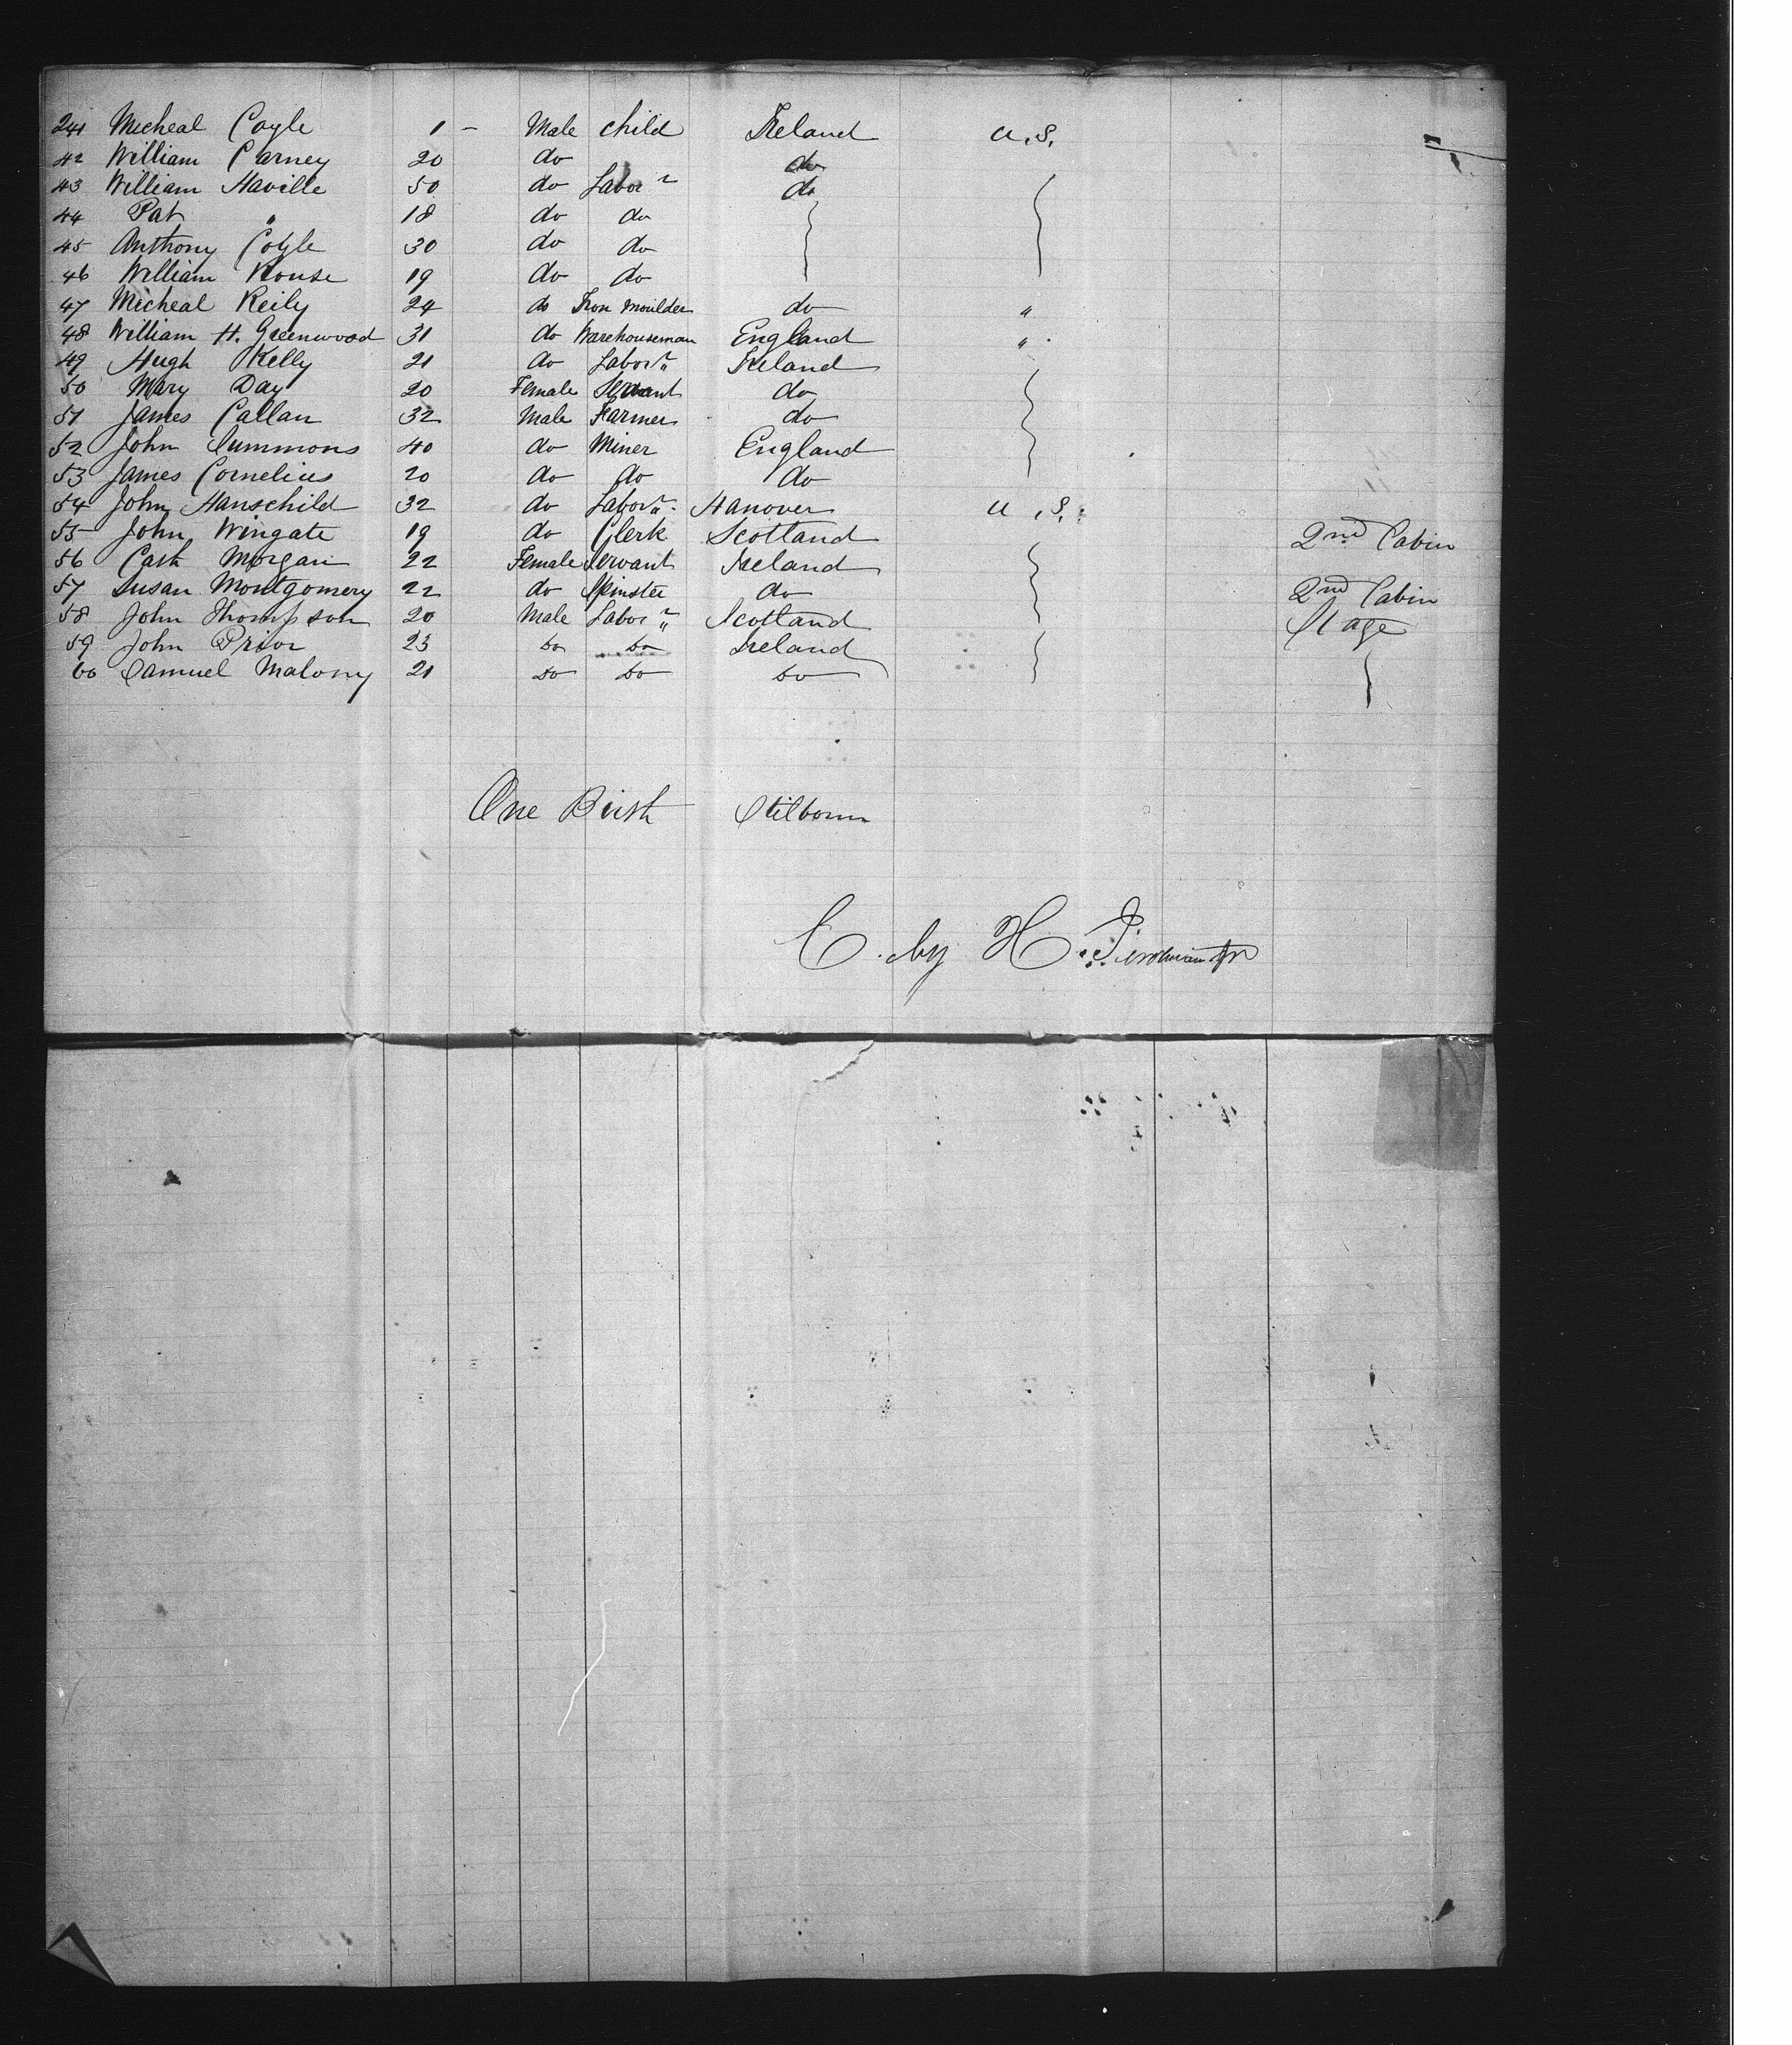 241 Micheal Coyle 1 - Male child Ireland U.S.
42 William Carney 20 do do
43 William Haville 50 do Labor r do
44 Pat " 18 do do
45 Anthony Coyle 30 do do
46 William Rouse 19 do do
47 Micheal Reily 24 do Iron Moulder do "
48 William H. Greenwood 31 do Warehouseman England "
49 Hugh Kelly 21 do Labor r Ireland
50 Mary Day 20 Female Servant do
51 James Callan 32 Male Farmer do
52 John Summons 40 do Miner England
53 James Cornelius 20 do do do
54 John Hanschild 32 do Labor r Hanover U.S.
55 John Wingate 19 do Clerk Scotland 2nd Cabin
56 Cath Morgan 22 Female Servant Ireland
57 Susan Montgomery 22 do Spinster do 2nd Cabin
58 John Thompson 20 Male Labor r Scotland Stage
59 John Prior 23 do do Ireland
60 Samuel Malony 21 do do do
One Birth Stilborn
E. by H.